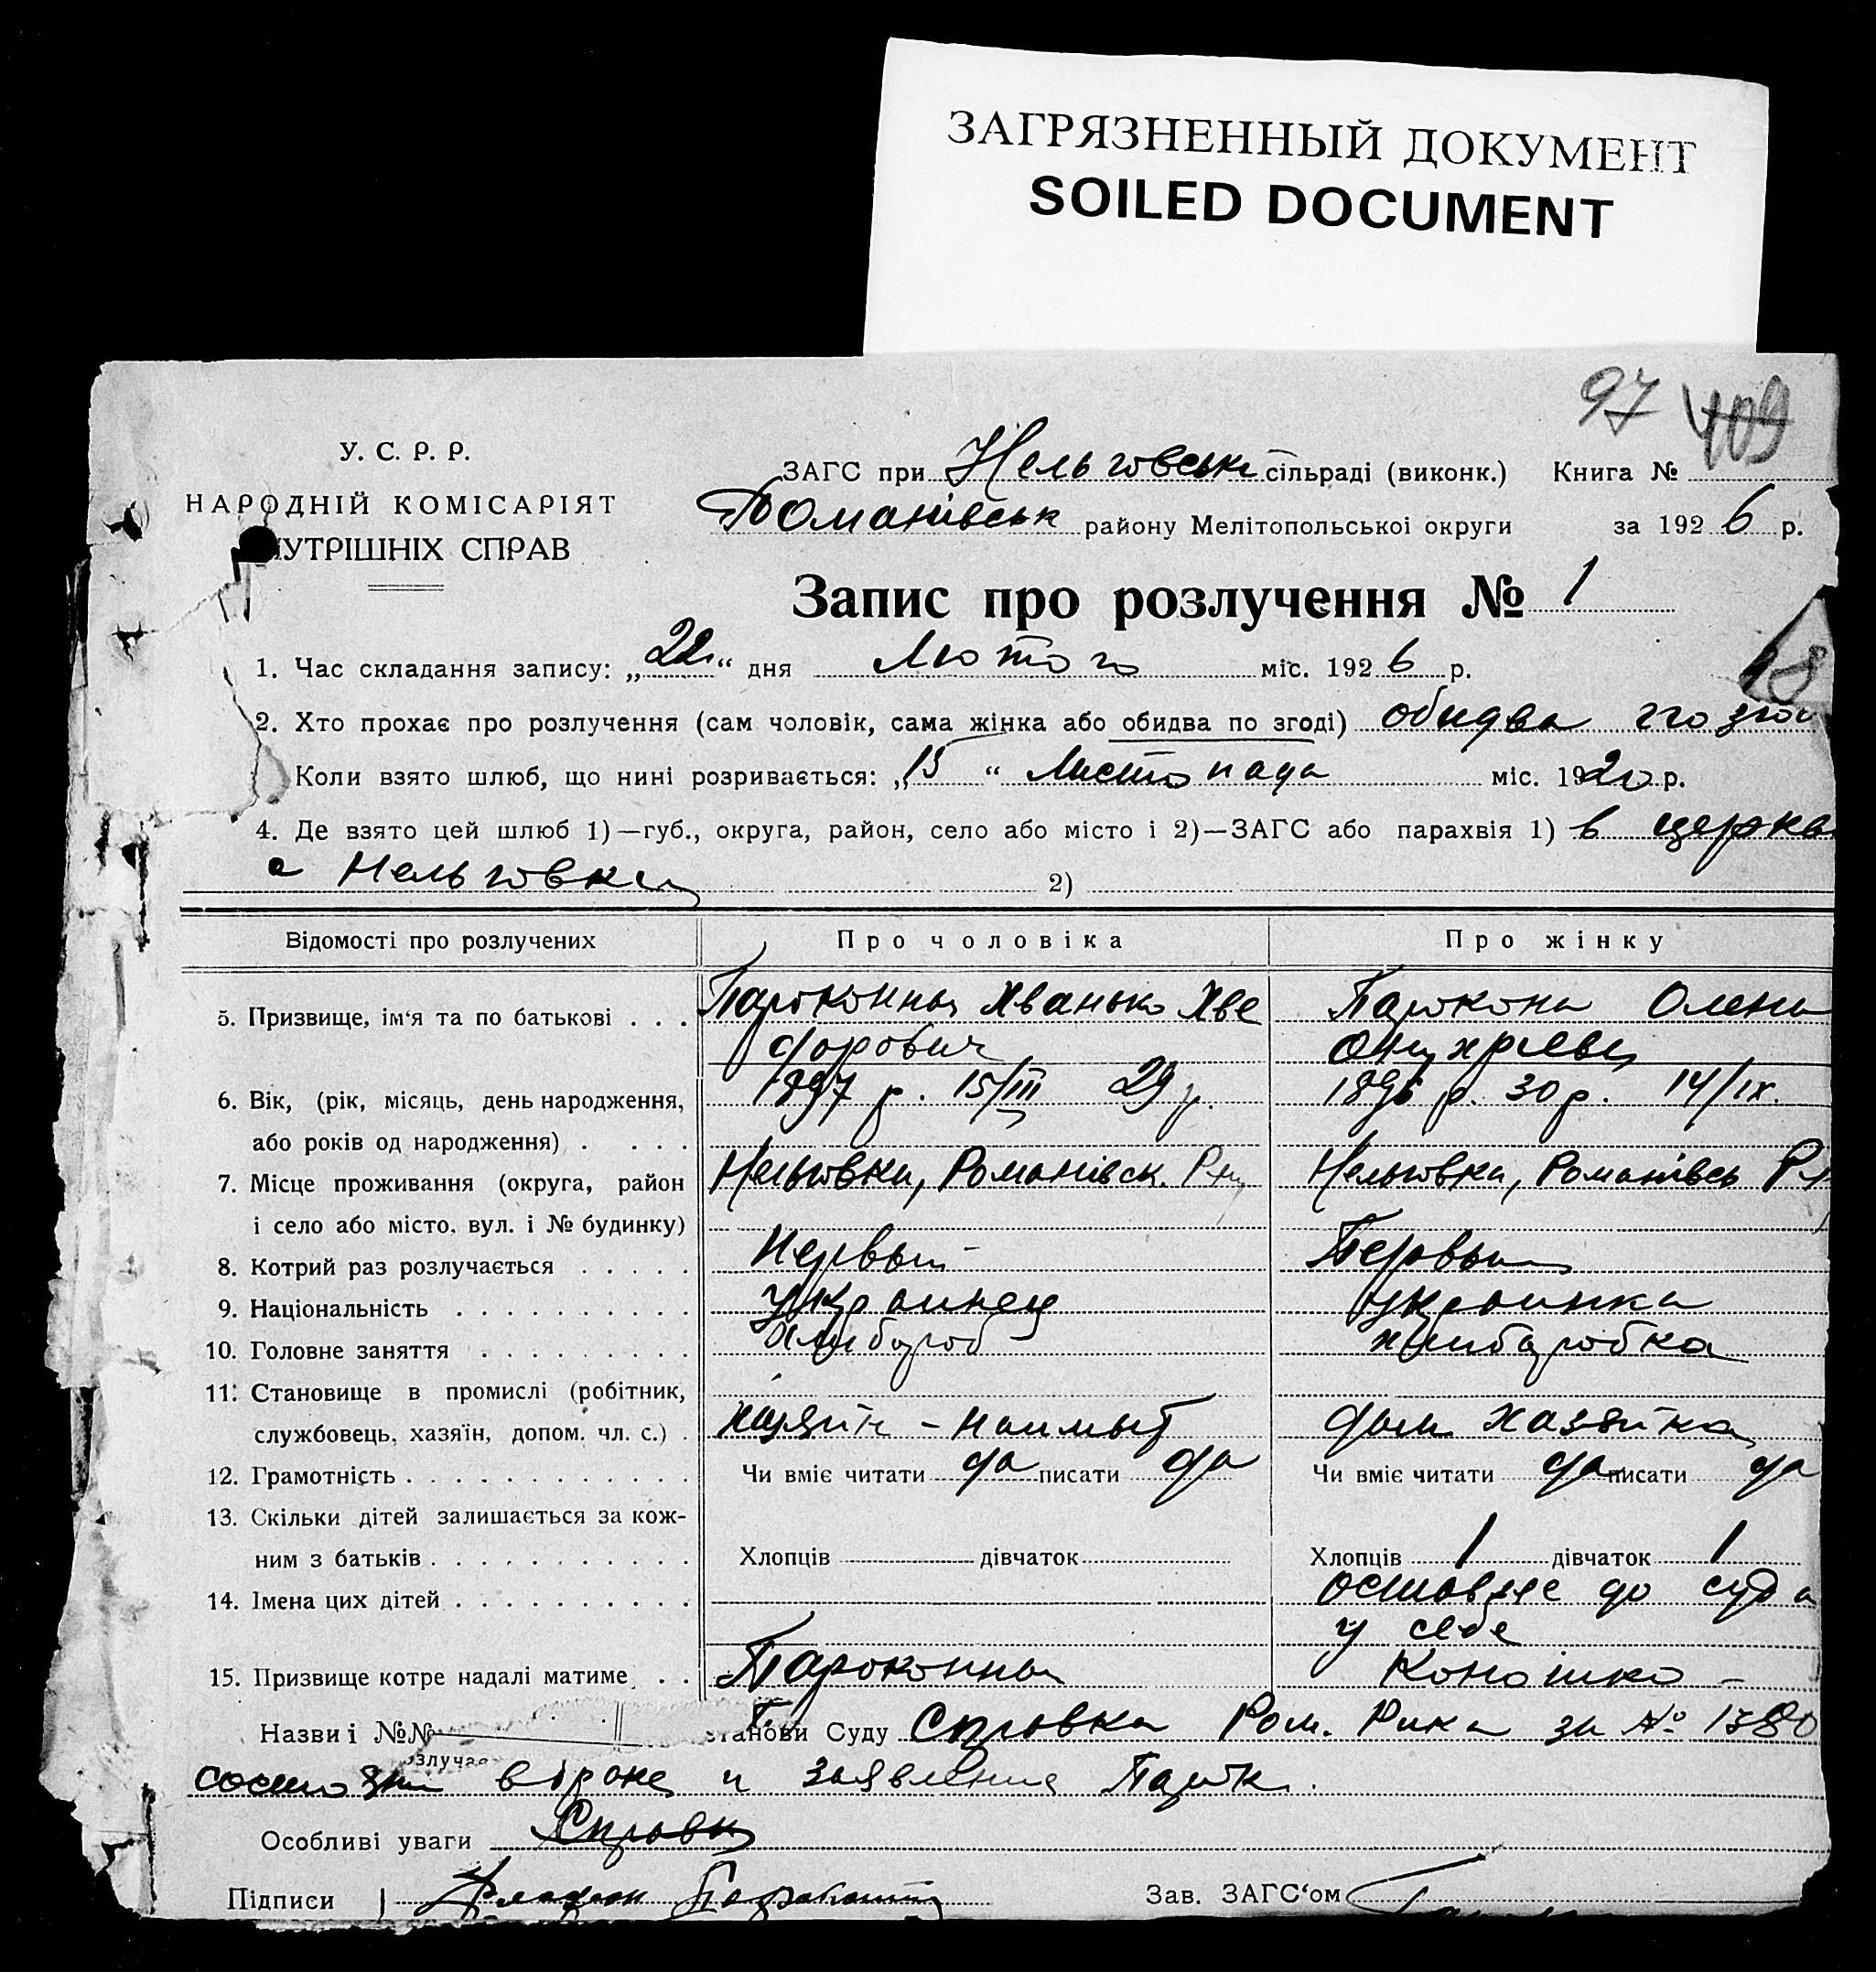 ЗАГРЯЗНЕННЫЙ ДОКУМЕНТ
SOILED DOCUMENT
97 109
У. С. Р. Р.
НАРОДНІЙ КОМІСАРІЯТ
НУТРІШНІХ СПРАВ
ЗАГС при Нельговські сільраді (виконк.) Книга №
Романівськ району Мелітопольської округи за 1926 р.
Запис про розлучення № 1
1. Час складання запису: „22“ дня Лютого міс. 1926 р.
18
2. Хто прохає про розлучення (сам чоловік, сама жінка або обидва по згоді) обидва по згоі
Коли взято шлюб, що нині розривається: „15“ Листопада міс. 1920 р.
4. Де взято цей шлюб 1)—губ., округа, район, село або місто і 2)—ЗАГС або парахвія 1) в церкв
с Нельговки 2)
Відомості про розлучених Про чоловіка Про жінку
5. Призвище, ім‘я та по батькові . . . Хванько Хве Олена
дорович
6. Вік, (рік, місяць, день народження, 1897 р. 15/III 29 р. 1896 р. 30 р. 14/IX.
або років од народження) . . . .
7. Місце проживання (округа, район Нельговка, Романівск. Нельговка, Романівсь
і село або місто, вул. і № будинку)
8. Котрий раз розлучається . . . . . Первый Первый
9. Національність . . . . . . . . . . украинец украинка
10. Головне заняття . . . . . . . . . хлибороб хлиборобка
11. Становище в промислі (робітник,
службовець, хазяїн, допом. чл. с.) . хазяін - дом хазяйка
12. Грамотність . . . . . . . . . . . . Чи вміє читати да писати да Чи вміє читати да писати да
13. Скільки дітей залишається за кож-
ним з батьків . . . . . . . . . . . Хлопців дівчаток Хлопців 1 дівчаток 1
14. Імена цих дітей . . . . . . . . . . до суда
у себе
15. Призвище котре надалі матиме . . Коношко -
Назви і №№ станови Суду Справка Ром. Рика за № 1380
розлучає
и заявление
Особливі уваги Справка
Підписи Зав. ЗАГС‘ом